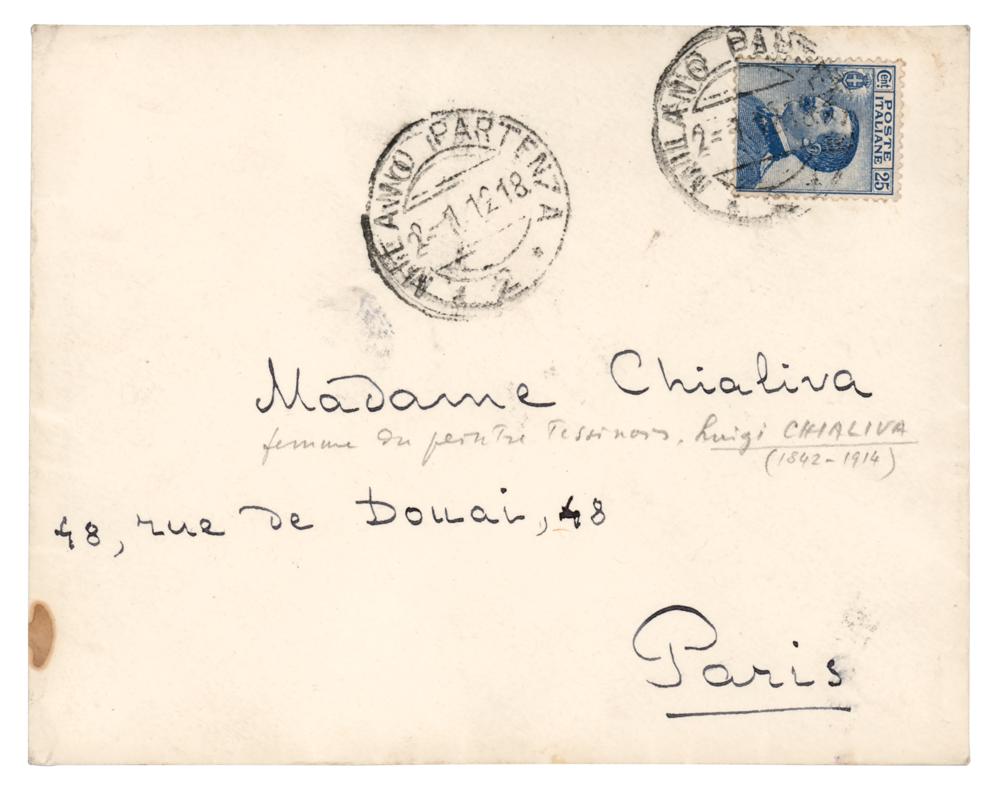 MILANO PARTENZA
2-1.12 18
MILANO
Cent.
POSTE
ITALIANE
25
Madame Chialiva
femme du peintre Tessinois, Luigi CHIALIVA
(1842-1914)
48, rue de Douai, 48
Paris